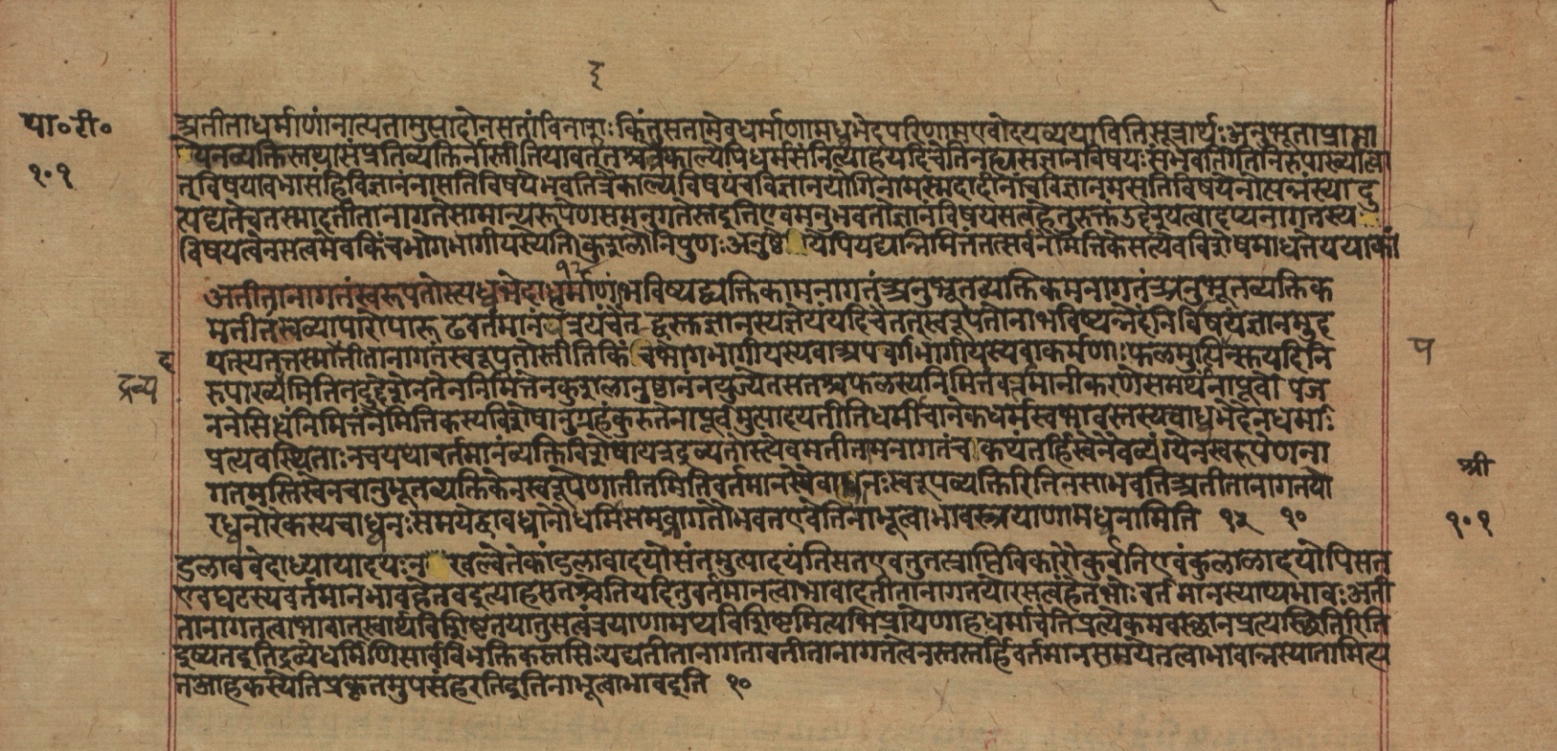 द्
अतीताधर्माणांनात्यतामुत्पादोनसतांविनाशः किंतुसतामेवधर्माणामध्वभेदपरिणामएवोदयव्ययावितिसूत्रार्थः अनुभूताप्रामा
येनव्यक्तिस्तथासंप्रतिव्यक्तिर्नास्तीतियावत् इतश्चत्रैकाल्येपिधर्मसंनित्याहयदिचेतिनह्यसज्ज्ञानविषयः संभवतिगतनिरुपाख्यात्वा
त् विषयावभासंहिविज्ञानंनासतिविषयेभवतित्रैकाल्यविषयंचविज्ञानंयोगिनामस्मदादीनांचविज्ञानमसतिविषयेनोत्पन्नंस्यादु
त्पद्यतेचतस्मादतीतानागतेसामान्यरूपेणसमनुगतेस्तइतिएवमनुभवतोज्ञानविषयसत्वहेतुरुक्तउद्देश्यत्वादप्यनागतस्य
विषयत्वेनसत्वमेवकिंचभोगभागीयस्येतिकुशलोनिपुणः अनुष्ठेयेपियद्यन्निमित्तंतत्सर्वंनैमित्तिकेसत्येवविशेषमाधत्तेयथाकां
अतीतानागतंस्वरूपतोस्त्यध्वभेदाद्धर्माणां १२ भविष्यद्व्यक्तिकमनागतं अनुभूतव्यक्तिकमनागतं अनुभूतव्यक्तिक
मतीतंस्वव्यापारोपारूढंवर्तमानं त्रयंचैतद्वस्तुज्ञानस्यज्ञेयंयदिचैतत्स्वरूपतोनाभविष्यन्नेदंनिर्विषयंज्ञानमुद
पत्स्यततस्मादतीतानागतंस्वरूपतोस्तीतिकिंचभोगभागीयस्यवाअपवर्गभागीयस्यवाकर्मणः फलमुत्पित्सुयदिनि
रुपाख्यमितितदुद्देशेनतेननिमित्तेनकुशलानुष्ठानंनयुज्येतसतश्चफलस्यनिमित्तंवर्त्तमानीकरणेसमर्थंनापूर्वोपज
ननेसिद्धंनिमित्तंनैमित्तिकस्यविशेषानुग्रहंकुरुतेनापूर्वमुत्पादयतीतिधर्मीचानेकधर्मस्वभावस्तस्यचाध्वभेदेनधर्माः
प्रत्यवस्थिताः नचयथावर्तमानंव्यक्तिविशेषापन्नंद्रव्यतोस्त्येवमतीतमनागतंच कथंतर्हिस्वेनैवव्यंग्येनस्वरूपेणना
गतमस्तिस्वेनचानुभूतव्यक्तिकेनस्वरूपेणातीतमितिवर्तमानस्यैवाध्वनः स्वरूपव्यक्तिरितिनसाभवतिअतीतानागतयो
रध्वनोरेकस्यचाध्वनः समयेद्वावध्वानौधर्मिसमन्वागतौभवतएवेतिनाभूत्वाभावस्त्रयाणामध्वनामिति १२ १०
डलाववेदाध्यायादयः न खल्वेतेकांडलावादयोसंतमुत्पादयंतिसतएवतुतत्प्राप्तिविकारौकुर्वंतिएवंकुलालादयोपिसत
एवघटस्यवर्तमानभावहेतवइत्याहसतश्चेतियदितुवर्तमानत्वाभावादतीतानागतयोरसत्वंहंतभोः वर्तमानस्याप्यभावः अती
तानागतत्वाभावात्स्वार्थविशिष्टतयातुसत्वंत्रयाणामप्यविशिष्टमित्यभिप्रायेणाहधर्मीचेतिप्रत्येकमवस्थानंप्रत्यवस्थितिरिति
द्रव्यतइतिद्रव्येधर्मिणिसार्वविभक्तिकस्तसिः यद्यतीतानागतावतीतानागतत्वेनस्तस्तर्हिवर्तमानसमयेतत्वाभावान्नस्यातामित्य
तआहकस्येतिप्रकृतमुपसंहरतिइतिनाभूत्वाभावइति १०
या॰टी॰
१०१
द्रव्य
ह
प
श्री
१०१